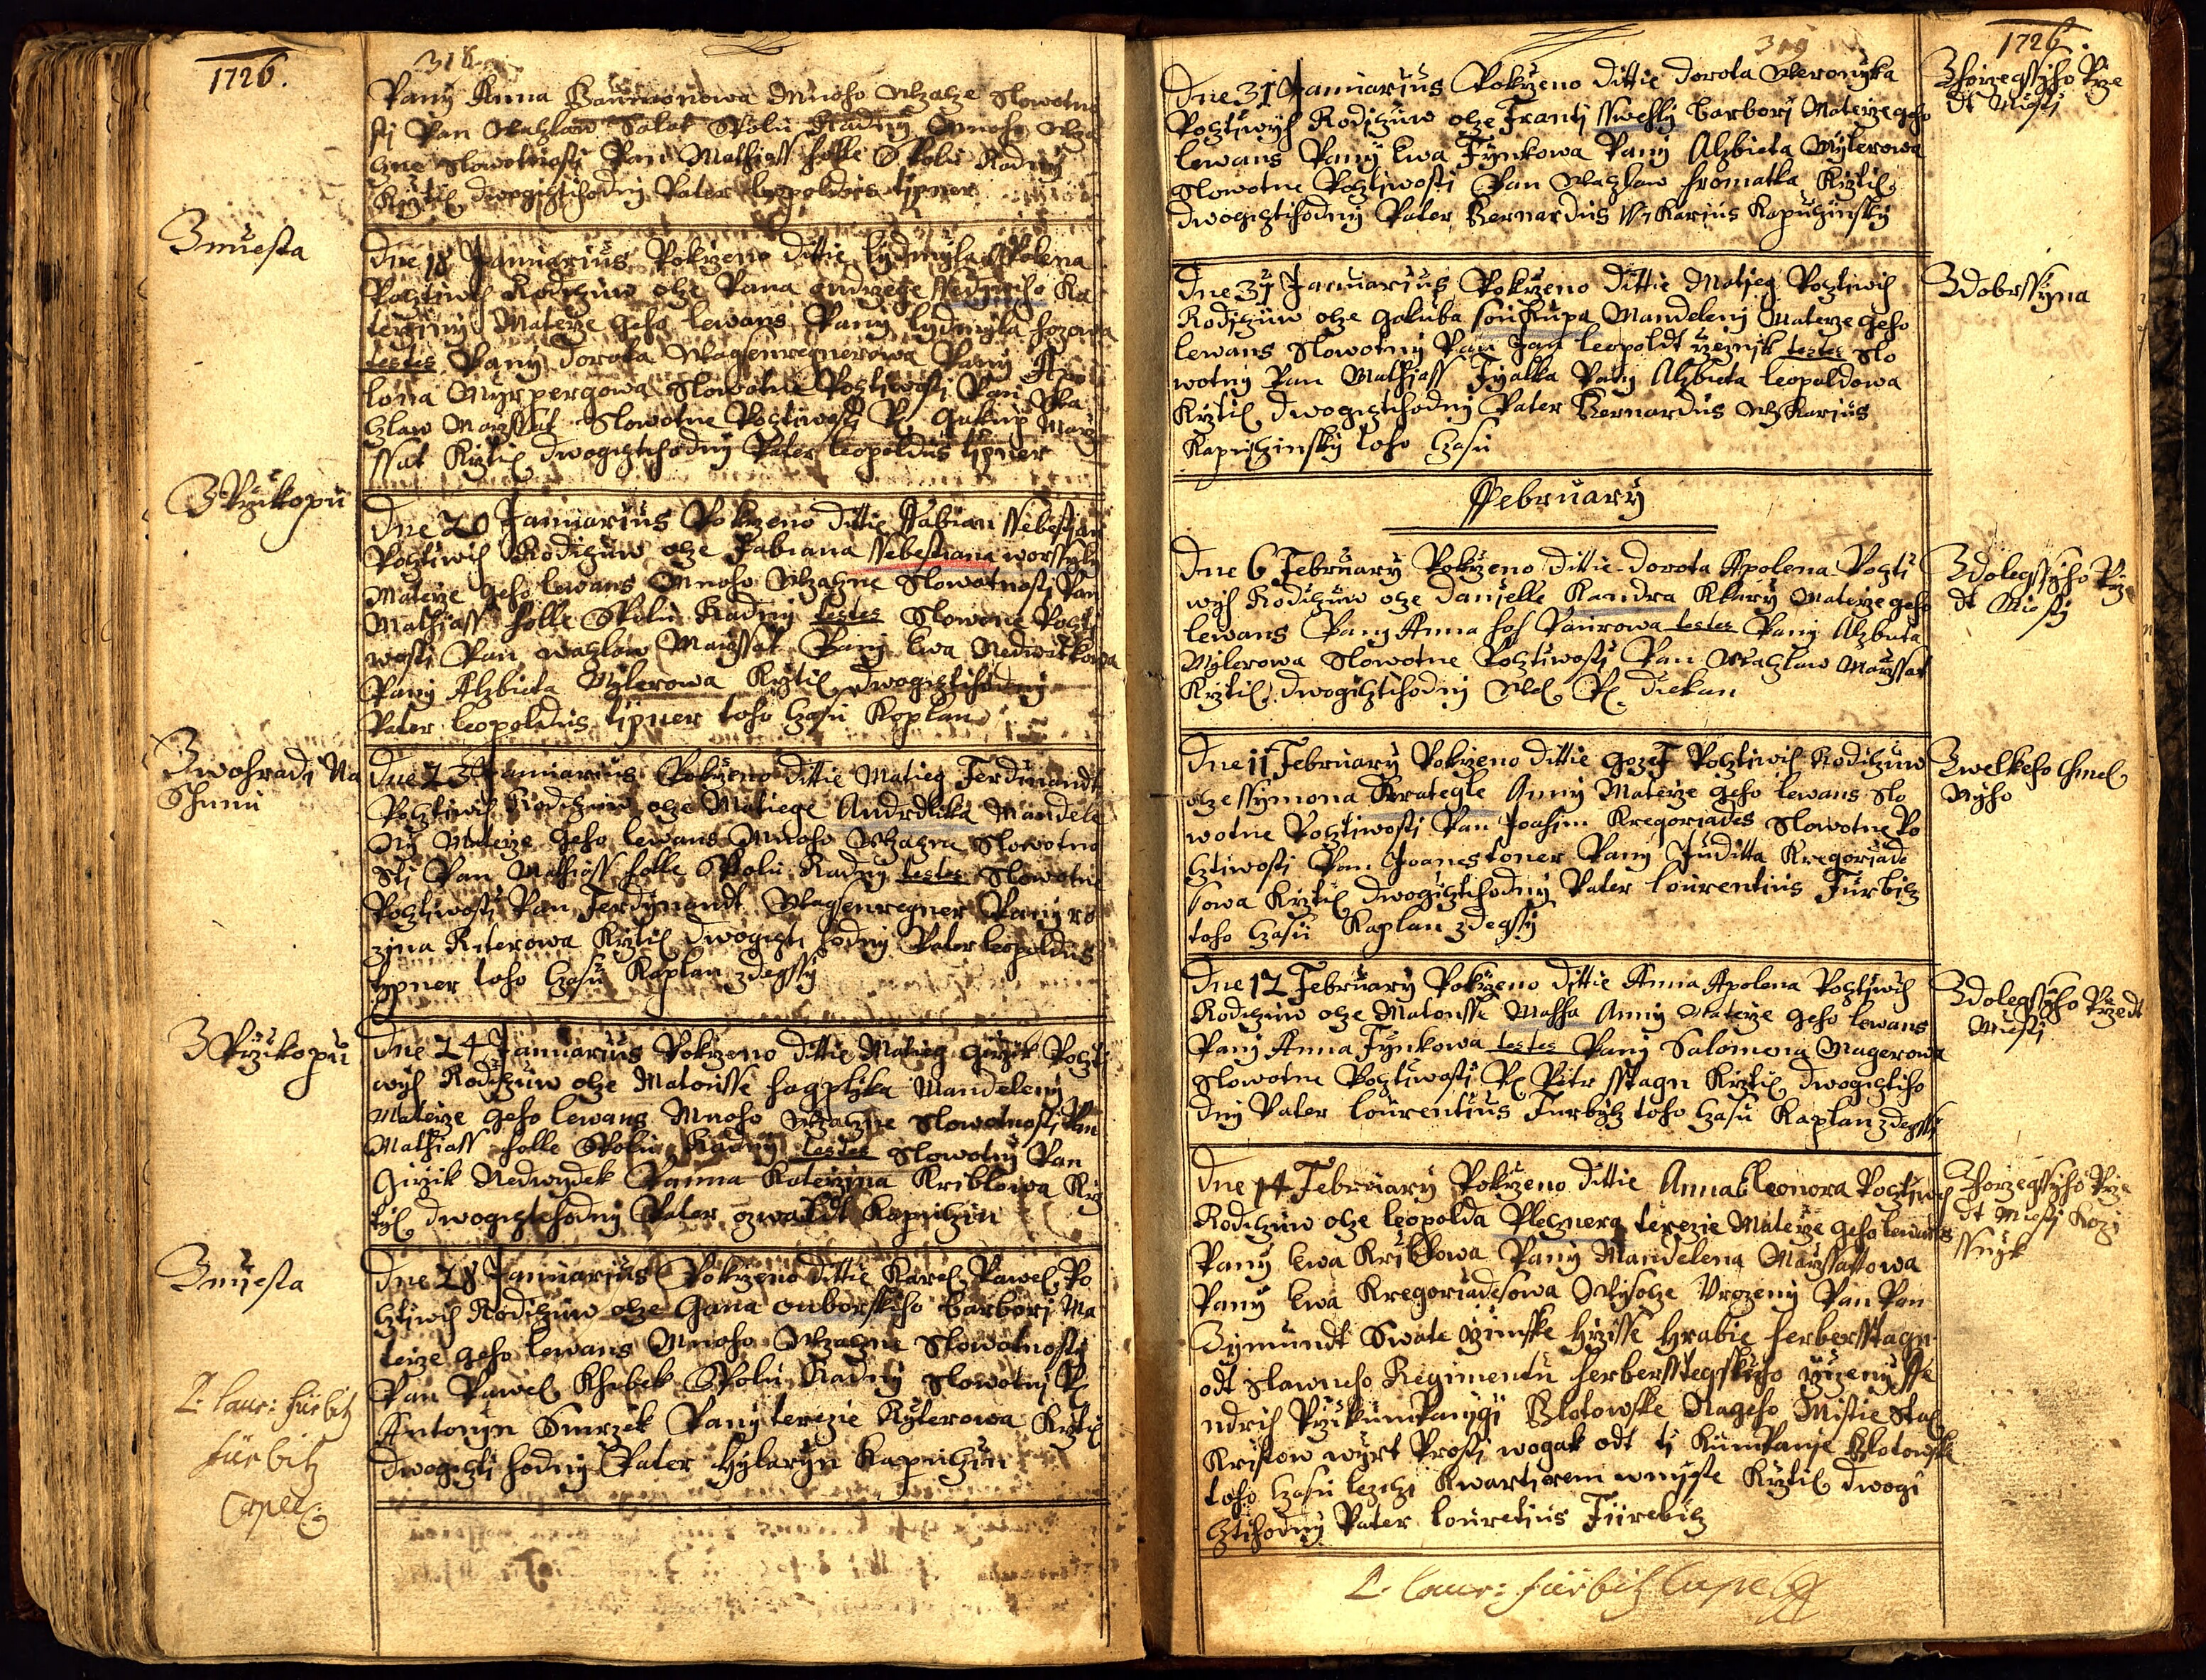 1726.
318
Pany Anna Baumonowa Mnoho Wzatze Slowotno
sti Pan Waczlaw Salat Spolu Radny Mnoho Wza
tzne Slowotnosti Pan Mathiass holle Spolu Radny
Krztil dwogicztihodny Pater Leopoldus tipner
Zmiesta
Dne 18 Januarius Pokrzeno dittie Lydmyla Apolena
Pocztiwich Rodiczuw otze Pana ondrzege
Ka
terziny Materze geho lewans Pany Lydmyla hozowa
testes Pany Dorota Wagenregnerowa Pany Apo
lona Myrpergowa Slowotne Pocztiwosti Pan Wa
czlaw Marssat Slowotne Pocztiwosti P. Jakup Mar
ssat Krztil dwogicztihodny Pater Leopoldus tipner
Z Przikopu
Dne 20 Januarius Pokrzeno dittie Ffabian Ssebestian
Pocztiwich Rodiczuw otze Fabiana Ssebestiana worssyly
Materze geho lewans Mnoho Wzatzne Slowotnosti Pan
Mathiass holle Spolu Radny testes Slowone Poczti
wosti Pan Waczlaw Marssat Pany Ewa Nedwiedkowa
Pany Alzbieta Mylerowa Krztil dwogicztihodny
Pater Leopoldus tipner toho czasu Kaplan
Zwohrady Na
Dne 23 Januarius Pokrzeno dittie Matieg Ferdinandt
Pocztiwich Rodiczuw otze Matiege Andrdlika Mandele
ny Materze geho lewans Mnoho Wzatzna Slowotno
sti Pan Mathiass holle Spolu Radny testes Slowotne
Pocztiwosti Pan Ferdynandt Wagenregner Pany ro
zina Riterowa Krztil dwogiczti hodny Pater Leopoldus
typner toho czasu Kaplan zdegssy
Z Przikopu
Dne 24 Januarius Pokrzeno dittie Matieg Girzik Poczti
wych Rodiczuw otze Matousse hagplika Mandeleny
Materze geho lewans Mnoho Wzatzne Slowotnosti Pan
Mathiass holle Spolu Radny testes Slowotny Pan
Girzik Nedwydek Panna Katerzina Kriblowa Krz
til dwogicztihodny Pater ozwaldt Kapuczin
Zmiesta
Dne 28 Januarius Pokrzeno dittie Karel Pawel Po
cztiwich Rodiczuw otze Gana onborskiho barbori Ma
terze geho lewans Mnoho Wzatzne Slowotnosti
Pan Pawel Khebek Spolu Radny Slowotny P.
Antonyn Smrzek Pany terezie Ryterowa Krztil
dwogiczti hodny Pater Hylaryn Kapuczin
P. Laur: fürbitz
fürbitz
Capel:
319
Dne 31 Januarius Pokrzeno dittie Dorota Weronyka
Pocztiwych Rodiczuw otze Frantz Sswehly barbori Materze geho
lewans Pany Ewa Fynkowa Pany Alzbieta Mylerowa
Slowotne Pocztiwosti Pan Waczlaw hromatka Krztil
dwogicztihodny Pater Bernardus Wikarius Kapuczinsky
1726.
Zhorzegssiho Prze
dt Miesti
Dne 31 Januarius Pokrzeno dittie Matieg Pocztiwich
Rodiczuw otze Gakuba Soukupa Mandeleny Materze geho
lewans Slowotny Pan Jan Leopoldt rzeznik testes Slo
wotny Pan Mathiass Fyalka Pany Alzbieta Leopoldowa
Krztil dwogicztihodny Pater Bernardus Wikarius
Kapuczinsky toho czasu
Zdobrssyna
Ffebruary
Dne 6 February Pokrzeno dittie Dorota Apolena Poczti
wych Rodiczuw otze Danielle Kandra Klary Materze geho
lewans Pany Anna hof Paurowa testes Pany Alzbieta
Mylerowa Slowotne Pocztiwosti Pan Waczlaw Marssat
Krztil dwogicztihodny Wel. P. Diekan
Zdolegssyho Prze
dt Miesti
Dne 11 February Pokrzeno dittie Gozef Pocztiwich Rodiczuw
otze Ssymona Krategle Anny Materze geho lewans Slo
wotne Pocztiwosti Pan Joahim Kregoriades Slowotne Po
cztiwosti Pan Joanes toner Pany Juditta Kregoriade
sowa Krztil dwogicztihodny Pater Lourentius Furbitz
toho czasu Kaplan zdegssy
Zwelkeho
Dne 12 February Pokrzeno dittie Anna Apolena Pocztiwich
Rodiczuw otze Matousse Mahha Anny Materze geho lewans
Pany Anna Fynkowa testes Pany Salomena Magerowa
Slowotne Pocztiwosti P. Petr Sstagn Krztil dwogicztiho
dny Pater Lourentius Furbytz toho czasu Kaplan zdegssi
Zdolegssyho Przedt
Miesti
Dne 14 February Pokrzeno dittie Anna Eleonora Pocztiwich
Rodiczuw otze Leopolda Pleznera terezie Materze geho lewans
Pany Ewa Kriblowa Pany Mandelena Marssattowa
Pany Ewa Kregoriadesowa Wysotze Vrozeny Pan Pan
Zymundt Swate rzimske hrzisse Hrabie herbersstagn
odt Slawneho Regimentu herbersstegskiho
ndrich Przi Kumpanygi Blotowske Nageho Mistie Stal
Kristow wyrt Prosti wogak odt ti Kumpanie Blotowske
toho czasu lezitzi Kwartirem wmyste Krztil dwogi
cztihodny Pater Louretius Fiirebitz
Zhorzegssyho Prze
dt Miesti Kozi
ssnyk
P. Laur: fürbitz Capel